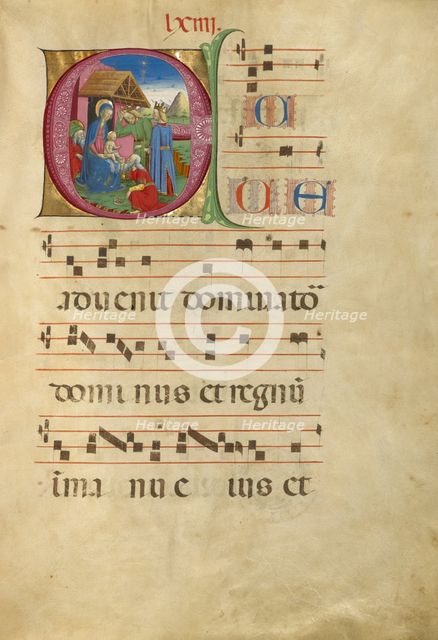 lxiiij.
E C
C E
aduenit dominatō
domi nus et regnū
ī ma nu e ius et
Heritage Heritage
Heritage Heritage
Heritage Heritage